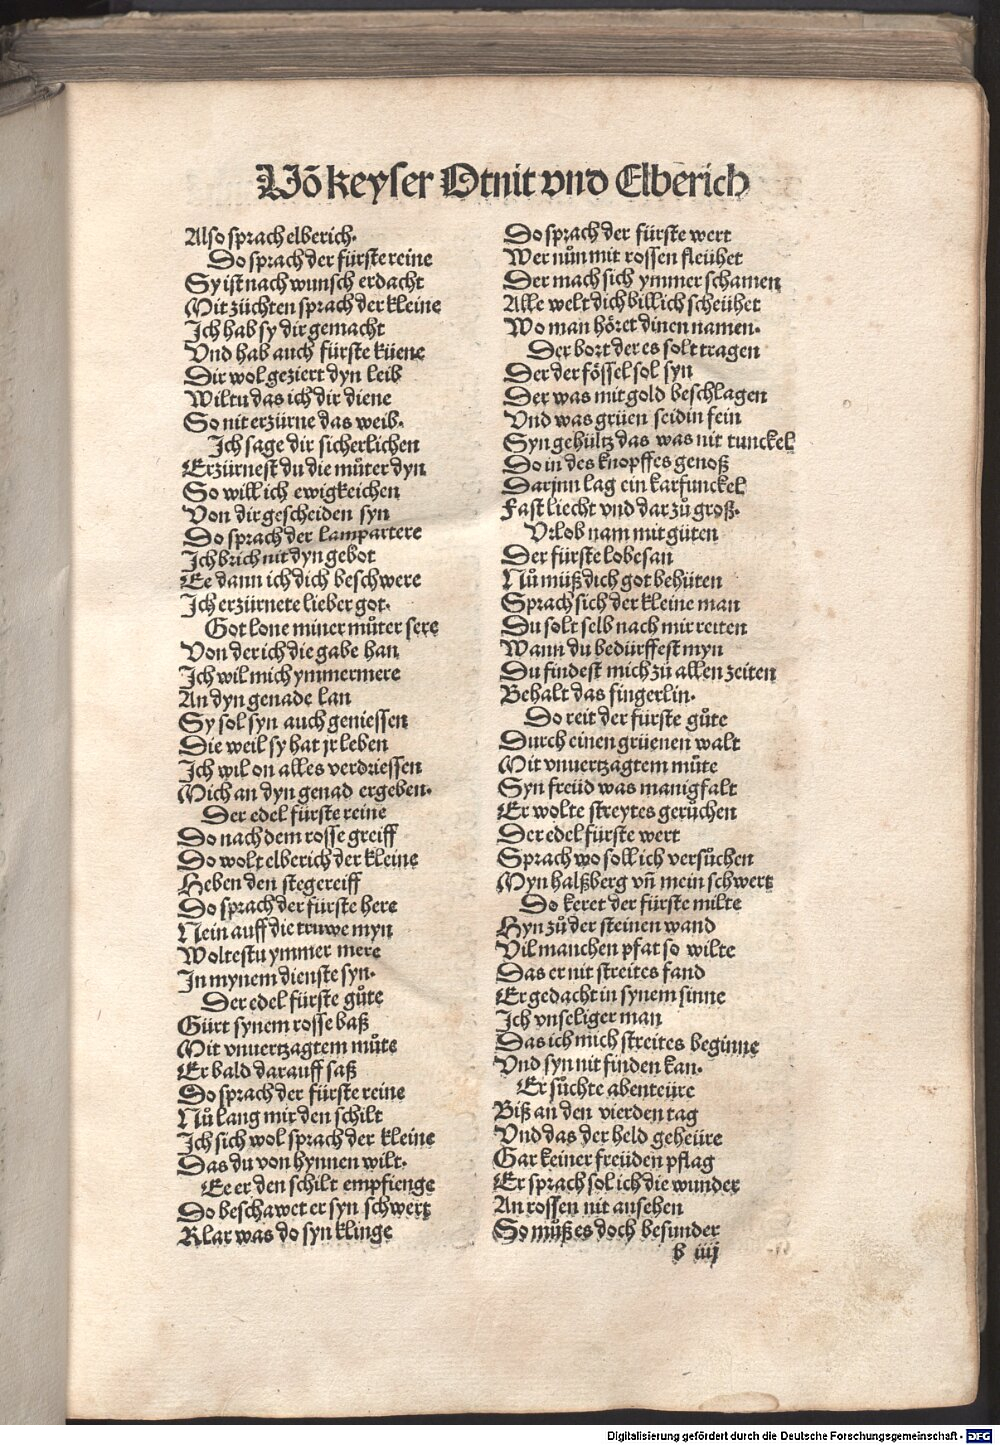 Võ keyser Otnit vnd Elberich
Also sprach elberich.
Do sprach der fürste reine
Sy ist nach wunsch erdacht
Mit züchten sprach der kleine
Ich hab sy dir gemacht
Vnd hab auch fürste küene
Dir wol geziert dyn leib
Wiltu das ich dir diene
So nit erzürne das weib.
Ich sage dir sicherlichen
Erzürnest du die můter dyn
So will ich ewigkeichen
Von dir gescheiden syn
Do sprach der lampartere
Ich brich nit dyn gebot
Ee dann ich dich beschwere
Ich erzürnete lieber got.
Got lone miner můter sere
Von der ich die gabe han
Ich wil mich ymmermere
An dyn genade lan
Sy sol syn auch geniessen
Die weil sy hat jr leben
Ich wil on alles verdriessen
Mich an dyn genad ergeben.
Der edel fürste reine
Do nach dem rosse greiff
Do wolt elberich der kleine
Heben den stegereiff
Do sprach der fürste here
Nein auff die truwe myn
Woltestu ymmer mere
In mynem dienste syn.
Der edel fürste gůte
Gürt synem rosse baß
Mit vnuertzagtem můte
Er bald darauff saß
Do sprach der fürste reine
Nů lang mir den schilt
Ich sich wol sprach der kleine
Das du von hynnen wilt.
Ee er den schilt empfienge
Do beschawet er syn schwert
Klar was do syn klinge
Do sprach der fürste wert
Wer nůn mit rossen fleühet
Der mach sich ymmer schamen
Alle welt dich billich scheühet
Wo man höret dinen namen.
Der bort der es solt tragen
Der der fössel sol syn
Der was mit gold beschlagen
Vnd was grüen seidin fein
Syn gehültz das was nit tunckel
Do in des knopffes genoß
Darjnn lag ein karfunckel
Fast liecht vnd dar zů groß.
Vrlob nam mit güten
Der fürste lobesan
Nů můß dich got behüten
Sprach sich der kleine man
Du solt selb nach mir reiten
Wann du bedürffest myn
Du findest mich zů allen zeiten
Behalt das fingerlin.
Do reit der fürste gůte
Durch einen grüenen walt
Mit vnuertzagtem můte
Syn freüd was manigfalt
Er wolte streytes gerůchen
Der edel fürste wert
Sprach wo soll ich versůchen
Myn halßberg vñ mein schwert
Do keret der fürste milte
Hyn zů der steinen wand
Vil manchen pfat so wilte
Das er nit streites fand
Er gedacht in synem sinne
Ich vnseliger man
Das ich mich streites beginne
Vnd syn nit finden kan.
Er sůchte abenteüre
Biß an den vierden tag
Vnd das der held geheüre
Gar keiner freüden pflag
Er sprach sol ich die wunder
An rossen nit ansehen
So můß es doch besunder
b iiij
Digitalisierung gefördert durch die Deutsche Forschungsgemeinschaft - DFG